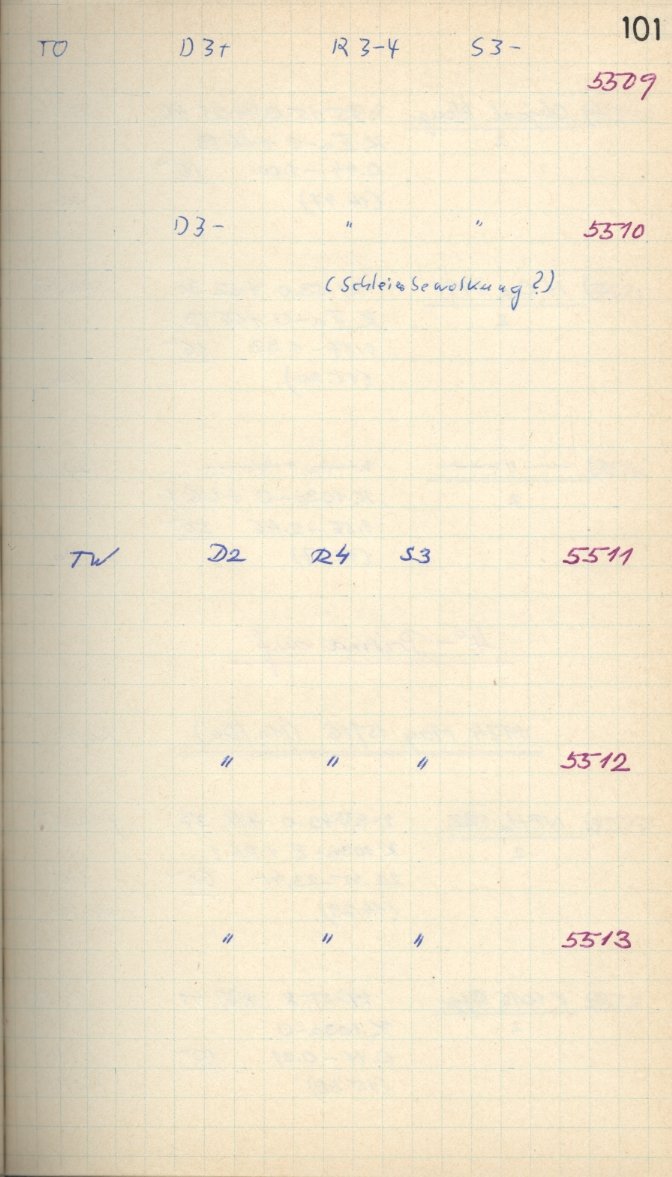 101
TO D3+ R3-4 S3-
5509
D3- " " 5510
(Schleierbewölkung?)
TW D2 R4 S3 5511
" " " 5512
" " " 5513